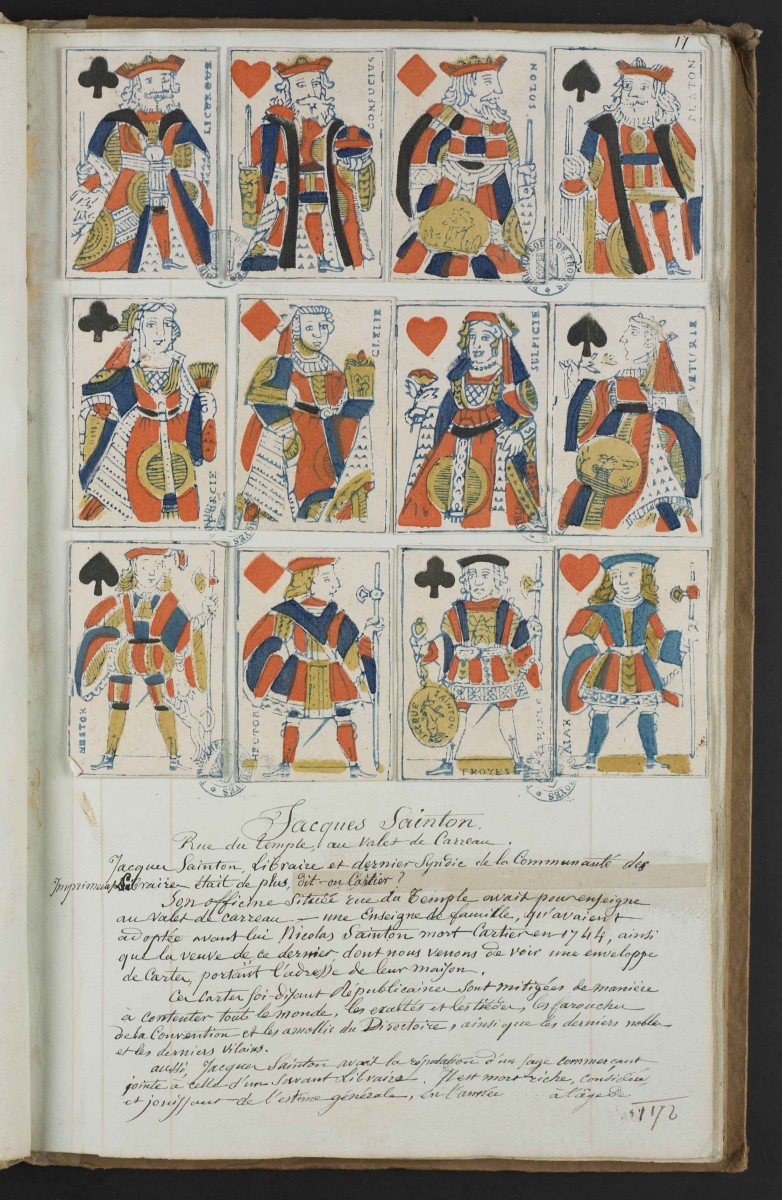 17
LICURGUE
CONFUCIUS
SOLON
PLATON
CLELIE
SULPICIE
VETURIE
NESTOR
HECTOR
JACQUE SAINTON
TROYES
AIAX
Jacques Sainton.
Rue du temple, au Valet de Carreau.
Jacques Sainton, Libraire et dernier Syndic de la Communauté des
Imprimeurs Libraires était de plus, dit-on Cartier?
Son officine située rue du Temple avait pour enseigne
au Valet de carreau — une Enseigne de famille, qu'avaient
adoptée avant lui Nicolas Sainton mort Cartier en 1744, ainsi
que la veuve de ce dernier, dont nous venons de voir une enveloppe
de Cartes, portant l'adresse de leur maison.
Ces cartes soi-disant Républicaines sont mitigées de manière
à contenter tout le monde, les exaltés et les tièdes, les farouches
de la Convention et les amollis du Directoire, ainsi que les derniers nobles
et les derniers vilains.
aussi, Jacques Sainton avait la réputation d'un sage commerçant
jointe à celle d'un Savant Libraire. Il est mort riche, considéré
et jouissant de l'estime générale, en l'année à l'âge de